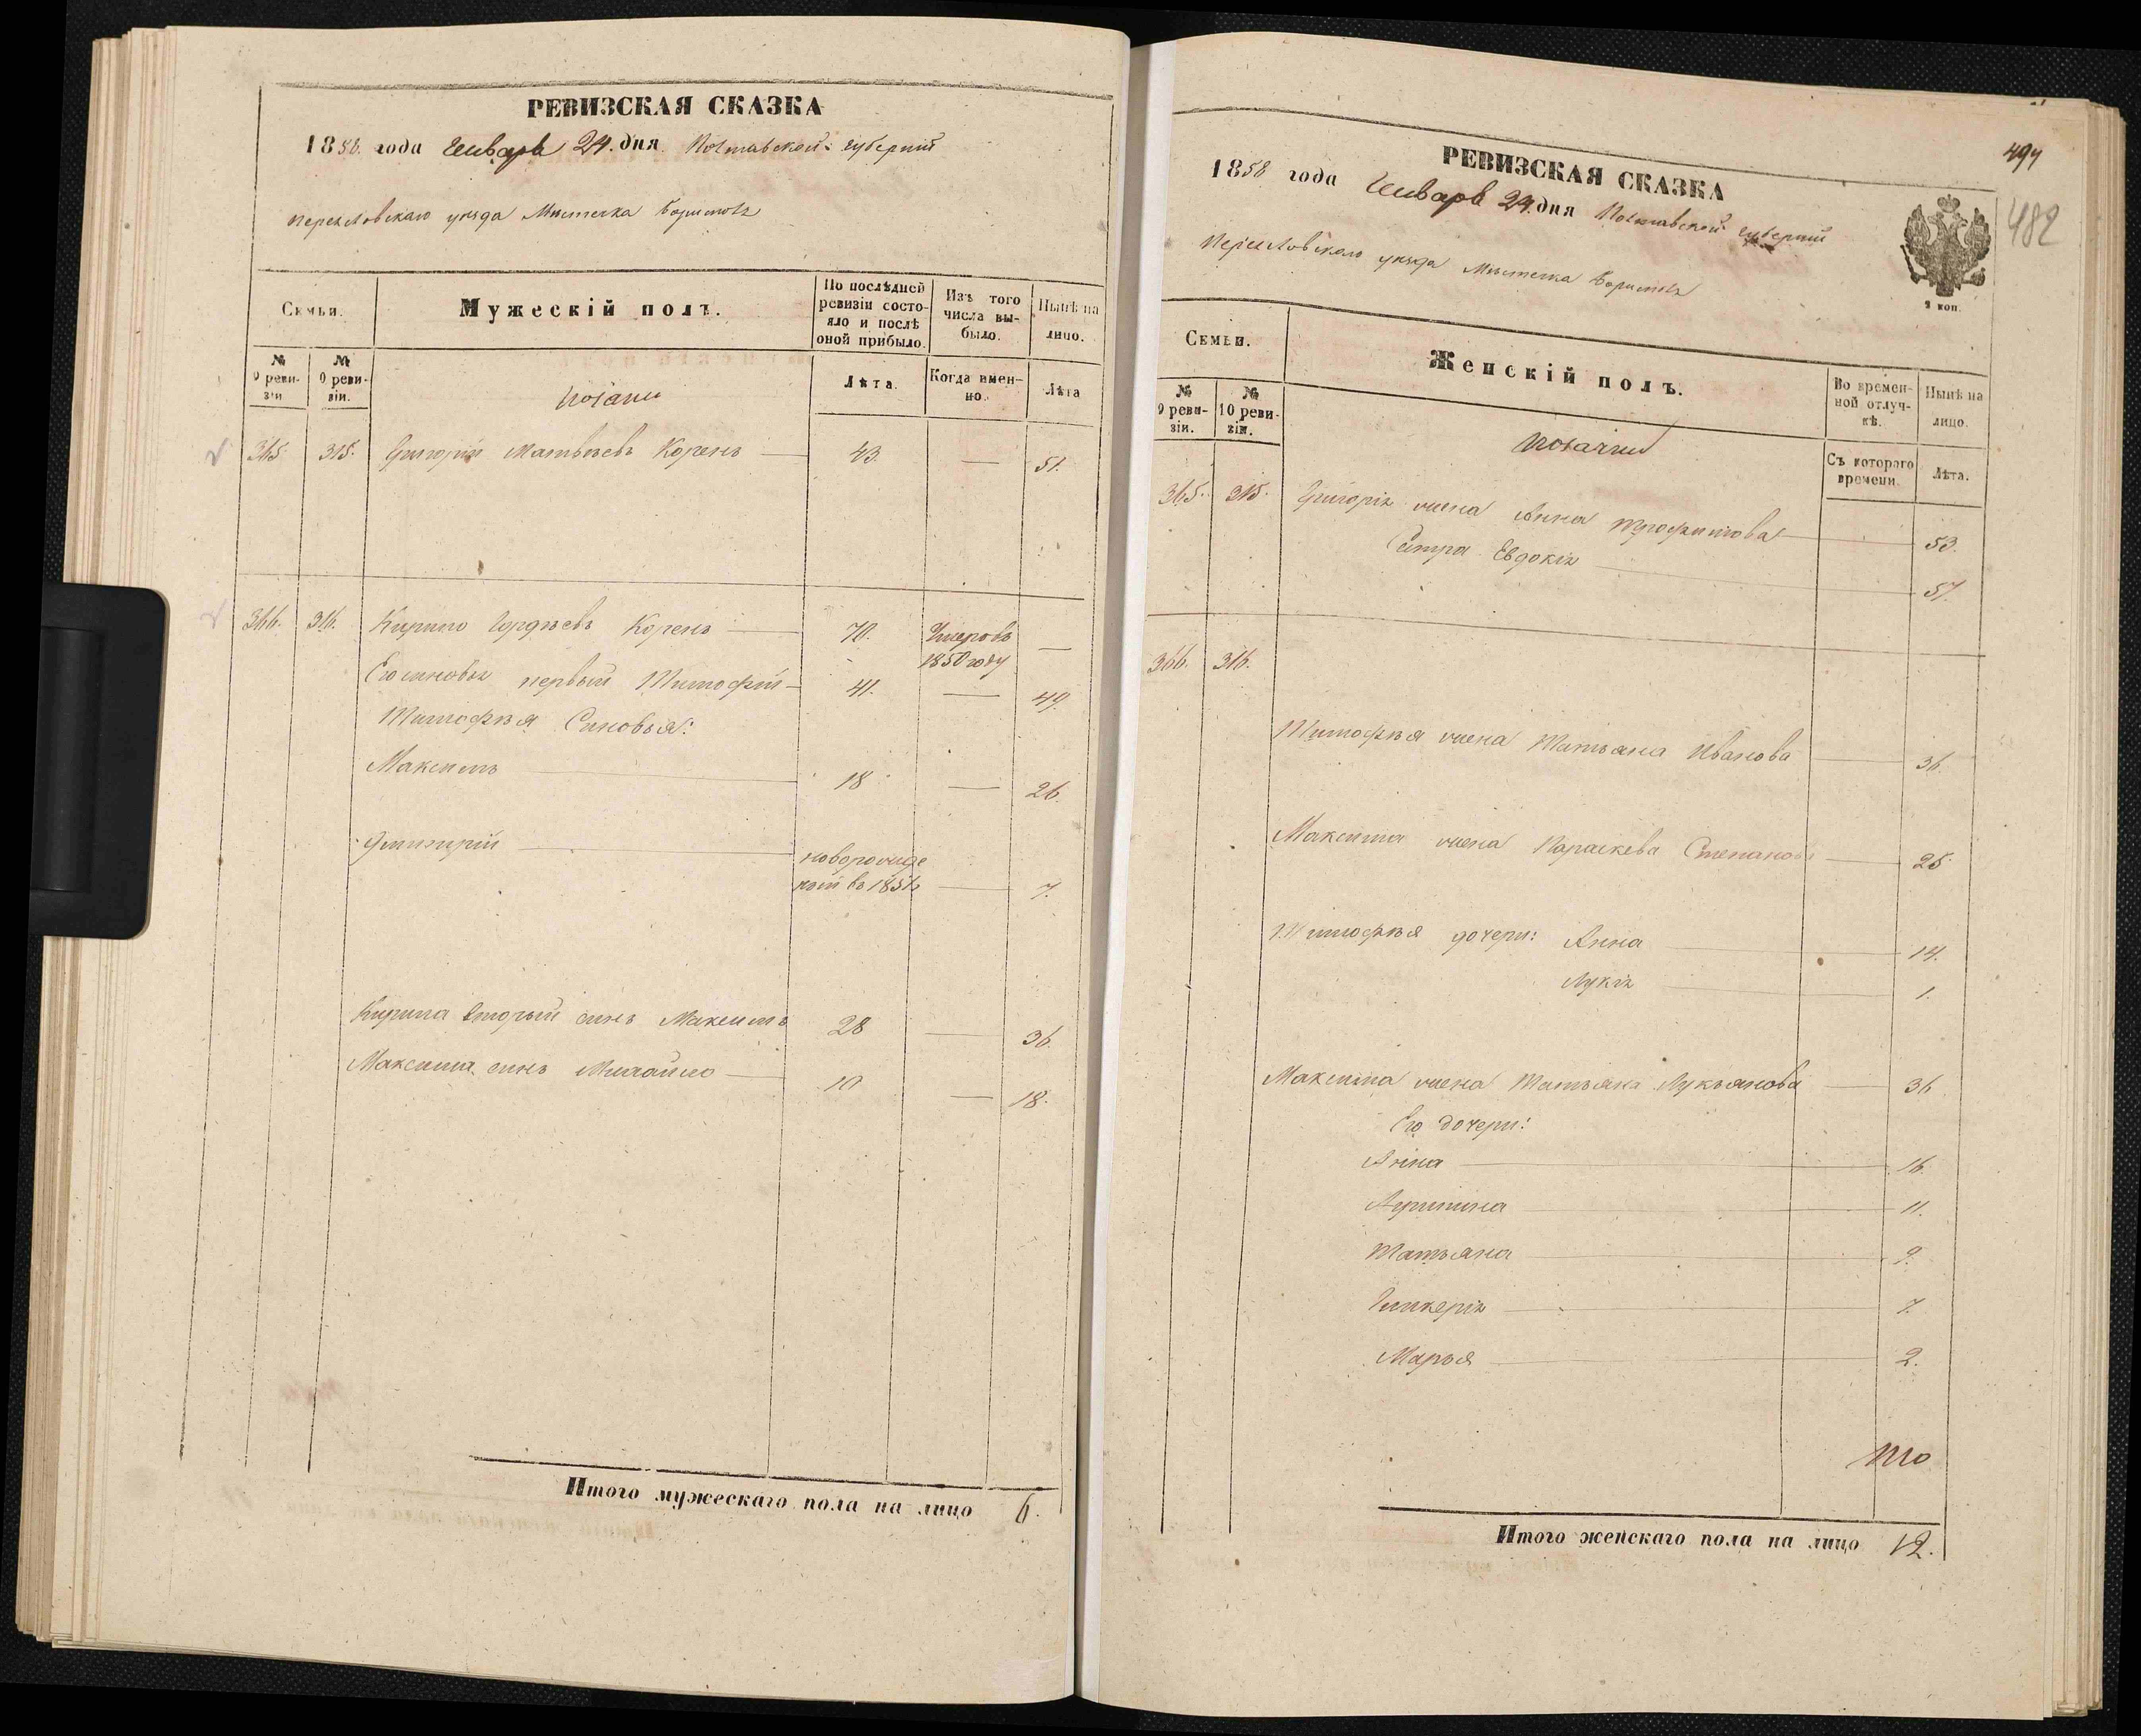 РЕВИЗСКАЯ СКАЗКА
1858. года Генваря 24. дня Полтавской губерніи
Переяловскаго уѣзда Мѣстечка Борисполя
Семьи.
Мужескій полъ.
По послѣдней ревизіи состояло и послѣ оной прибыло.
Изъ того числа выбыло.
Нынѣ на лицо.
№ 9 ревизіи
№ 10 ревизіи.
Козаки
Лѣта.
Когда именно.
Лѣта
365. 315. Григорій Матвѣевъ Корень 43. — 51.
366. 316. Кирило Гордѣевъ Корень 70. Умеръ въ 1850 году —
Его сыновья первый Тимофѣй 41. — 49.
Тимофѣя Сыновья:
Максимъ 18 — 26.
Дмитрій новорожденный въ 1851 — 7.
Кирила вторый сынъ Максимъ 28 — 36.
Максима сынъ Михайло 10 — 18.
Итого мужескаго пола на лицо 6.
494
482
РЕВИЗСКАЯ СКАЗКА
1858 года Генваря 24. дня Полтавской губерніи
Переяловскаго уѣзда Мѣстечка Борисполя
2 коп.
Семьи.
Женскій полъ.
Во временной отлучкѣ.
Нынѣ на лицо.
№ 9 ревизіи.
№ 10 ревизіи.
Козачки
Съ котораго времени.
Лѣта.
365. 315. Григорія жена Анна Трофимова 53.
Сестра Евдокія 57.
366. 316.
Тимофѣя жена Татьяна Иванова 36.
Максима жена Параскева Степанова 25.
Тимофѣя дочери: Анна 14.
Лукія 1.
Максима жена Татьяна Лукьянова 36
Его дочери:
Анна 16.
Агрипина 11.
Татьяна 9.
Гликерія 7.
Марья 2.
Итого женскаго пола на лицо 12.